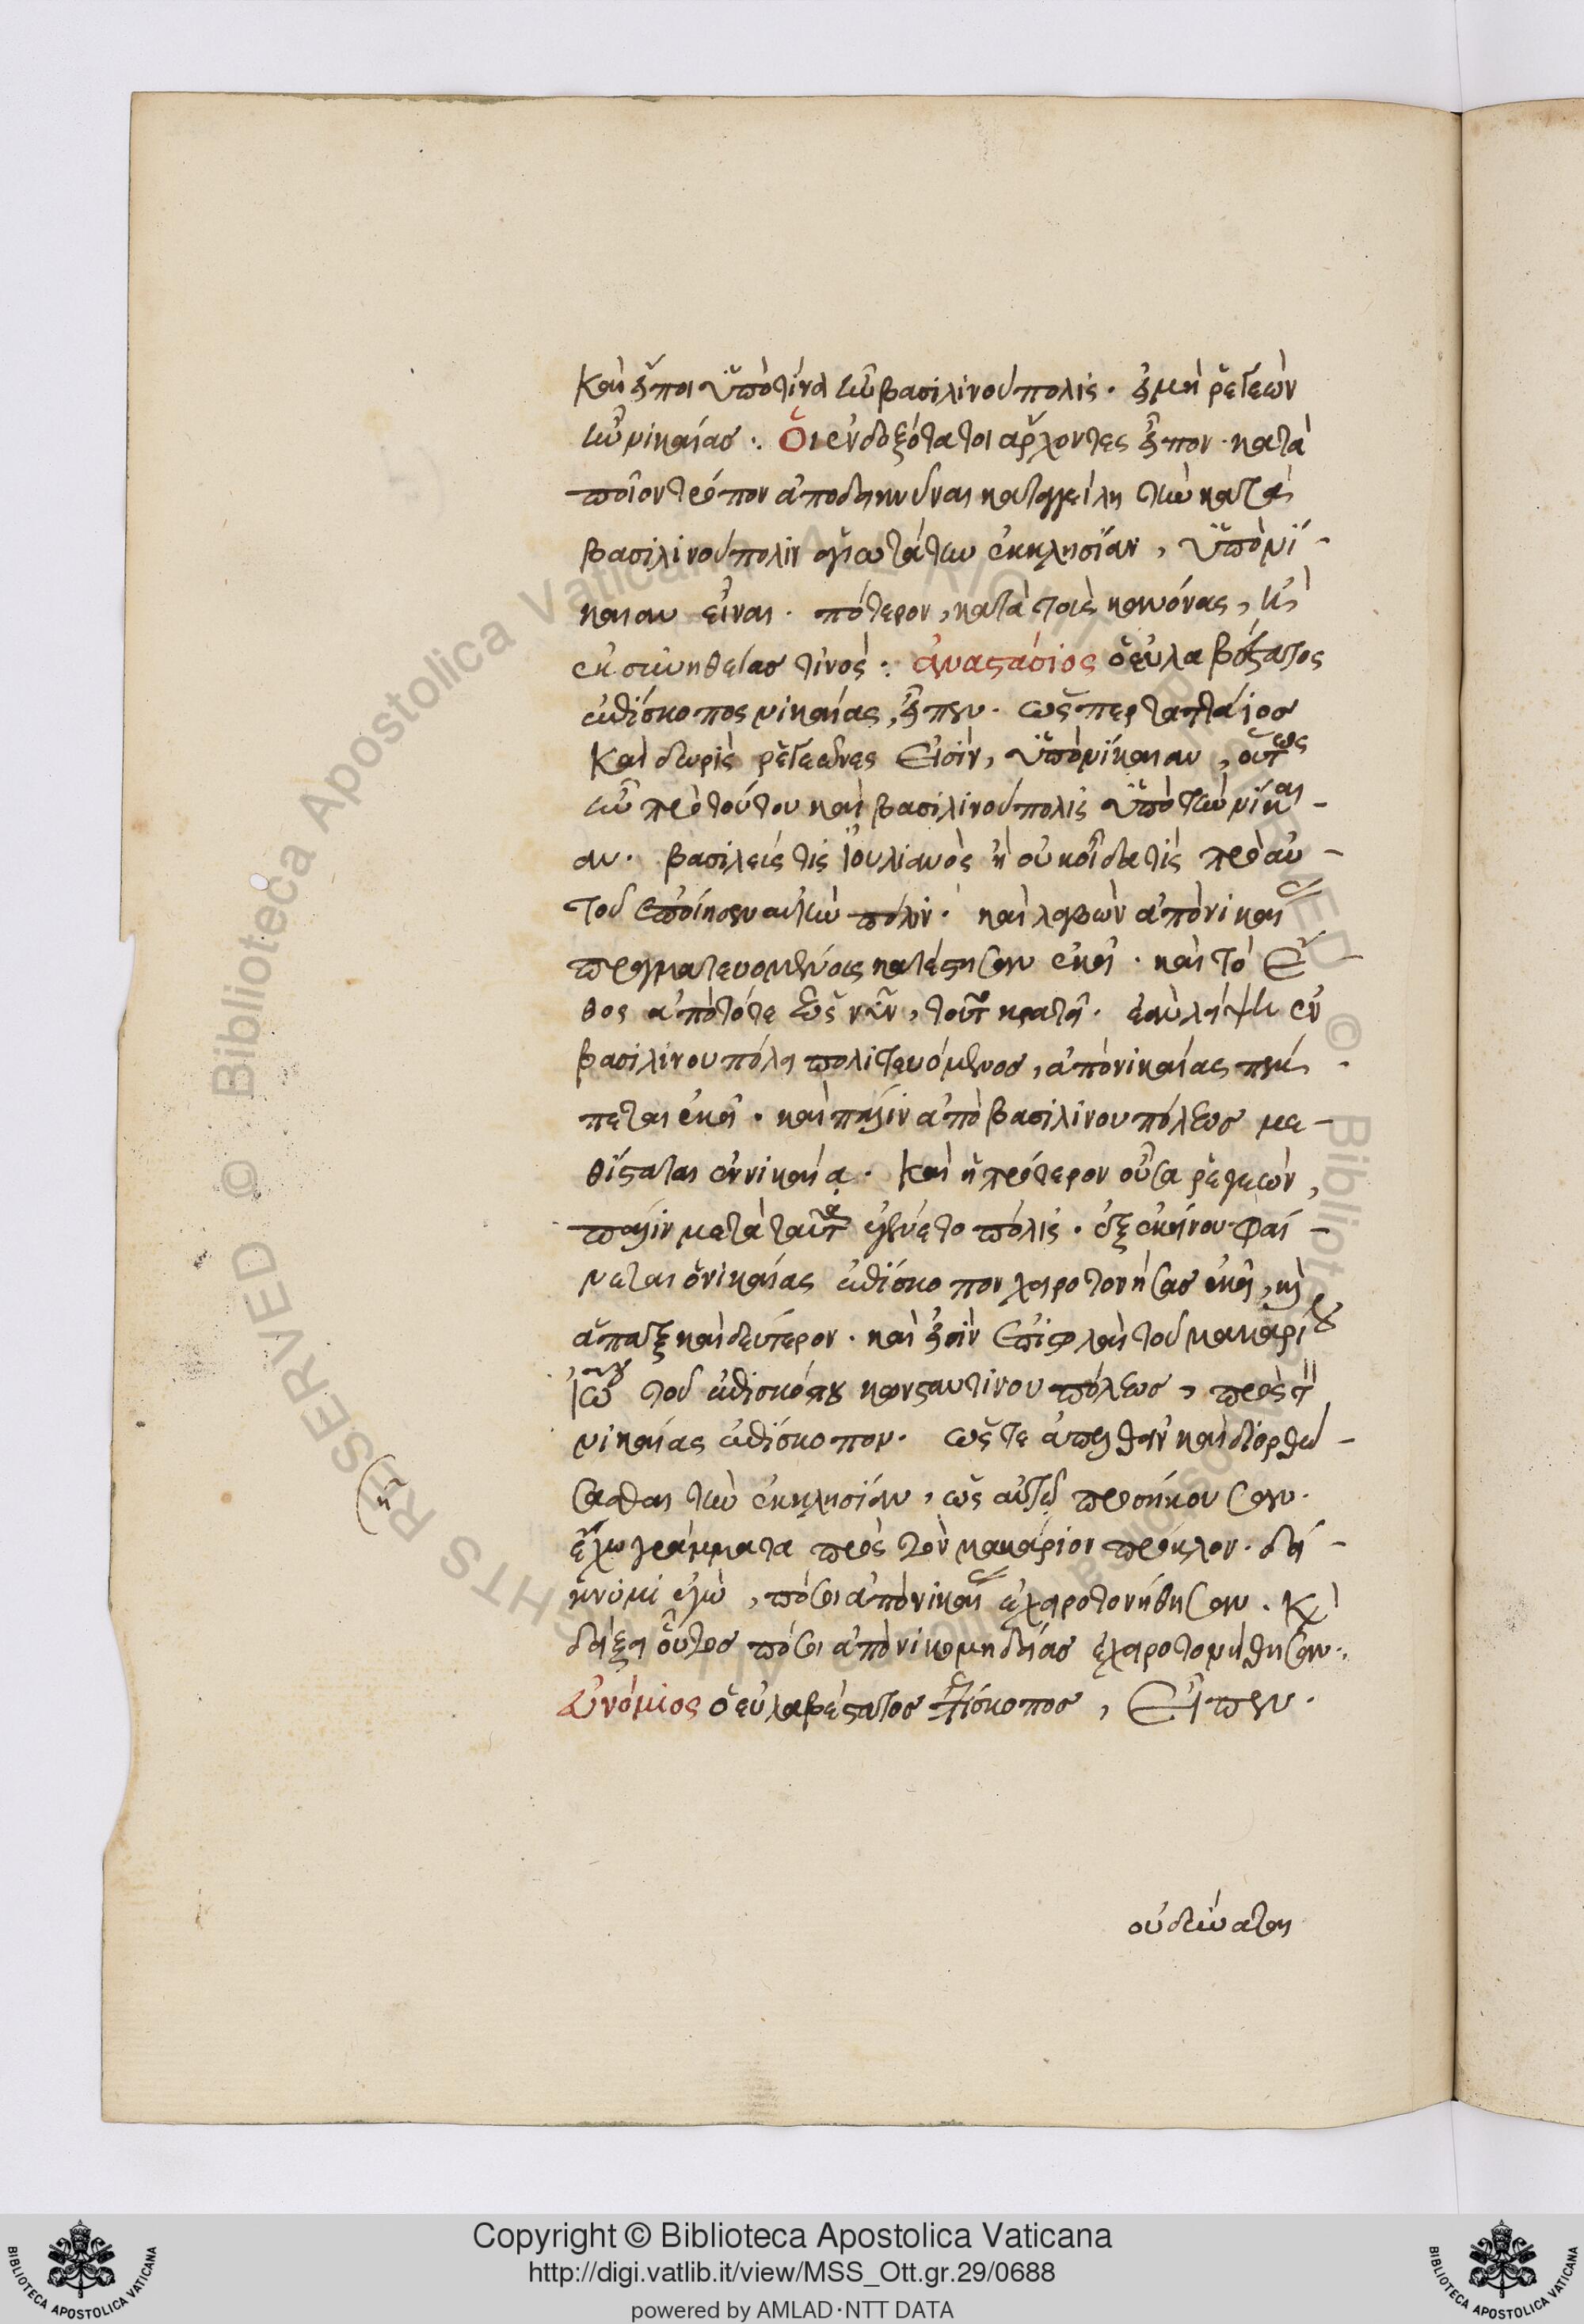 καὶ εἴποι ὑπὸ τίνα ἦν βασιλινούπολις. εἰ μὴ ῥεγεὼν
ἦν νικαίας. Οἱ ἐνδοξότατοι ἄρχοντες εἶπον. κατὰ
ποῖον τρόπον ἀποδεικνύναι κατηγγείλη τὴν κατὰ
βασιλινούπολιν ἁγιωτάτην ἐκκλησίαν, ὑπὸ νί-
καιαν εἶναι. πότερον, κατὰ τοὺς κανόνας, ἢ
ἐκ συνηθείας τινός. ἀναστάσιος ὁ εὐλαβέστατος
ἐπίσκοπος νικαίας, εἶπεν. ὥσπερ ταττάϊος
καὶ δωρὶς ῥεγεῶνες εἰσὶν, ὑπὸ νίκαιαν, οὕτως
ἦν πρὸ τούτου καὶ βασιλινούπολις ὑπὸ τὴν νίκαι-
αν. βασιλεύς τις ἰουλιανὸς ἢ οὐκ οἶδα τίς πρὸ αὐ-
τοῦ ἐποίησεν αὐτὴν πόλιν. καὶ λαβὼν ἀπὸ νικαίας
πραγματευομένους κατέστησεν ἐκεῖ. καὶ τὸ ἔ-
θος ἀπὸ τότε ἕως νῦν, τοῦτο κρατεῖ. ἐὰν λείψει ἐν
βασιλινουπόλει πολιτευόμενος, ἀπὸ νικαίας πέμ-
πεται ἐκεῖ. καὶ πάλιν ἀπὸ βασιλινουπόλεως με-
θίσταται ἐν νικαίᾳ. καὶ ἡ πρότερον οὖσα ῥεγεὼν,
πάλιν μετὰ ταῦτα ἐγένετο πόλις. ἐξ ἐκείνου φαί-
νεται ὁ νικαίας ἐπίσκοπον χειροτονήσας ἐκεῖ, καὶ
ἅπαξ καὶ δεύτερον. καὶ εἰσὶν ἐπιστολαὶ τοῦ μακαρίου
ἰωάννου τοῦ ἐπισκόπου κωνσταντίνου πόλεως, πρὸς τὸν
νικαίας ἐπίσκοπον. ὥστε ἀπελθεῖν καὶ διορθώ-
σασθαι τὴν ἐκκλησίαν, ὡς αὐτῷ προσήκουσαν.
ἔχω γράμματα πρὸς τὸν μακάριον πρόκλον. δεί-
κνυμι ἐγὼ, πόσοι ἀπὸ νικαίας ἐχειροτονήθησαν. καὶ
δείξει οὗτος πόσοι ἀπὸ νικομηδείας ἐχειροτονήθησαν.
Εὐνόμιος ὁ εὐλαβέστατος ἐπίσκοπος, εἶπεν.
οὐ δύναται
Copyright © Biblioteca Apostolica Vaticana
http://digi.vatlib.it/view/MSS_Ott.gr.29/0688
powered by AMLAD·NTT DATA